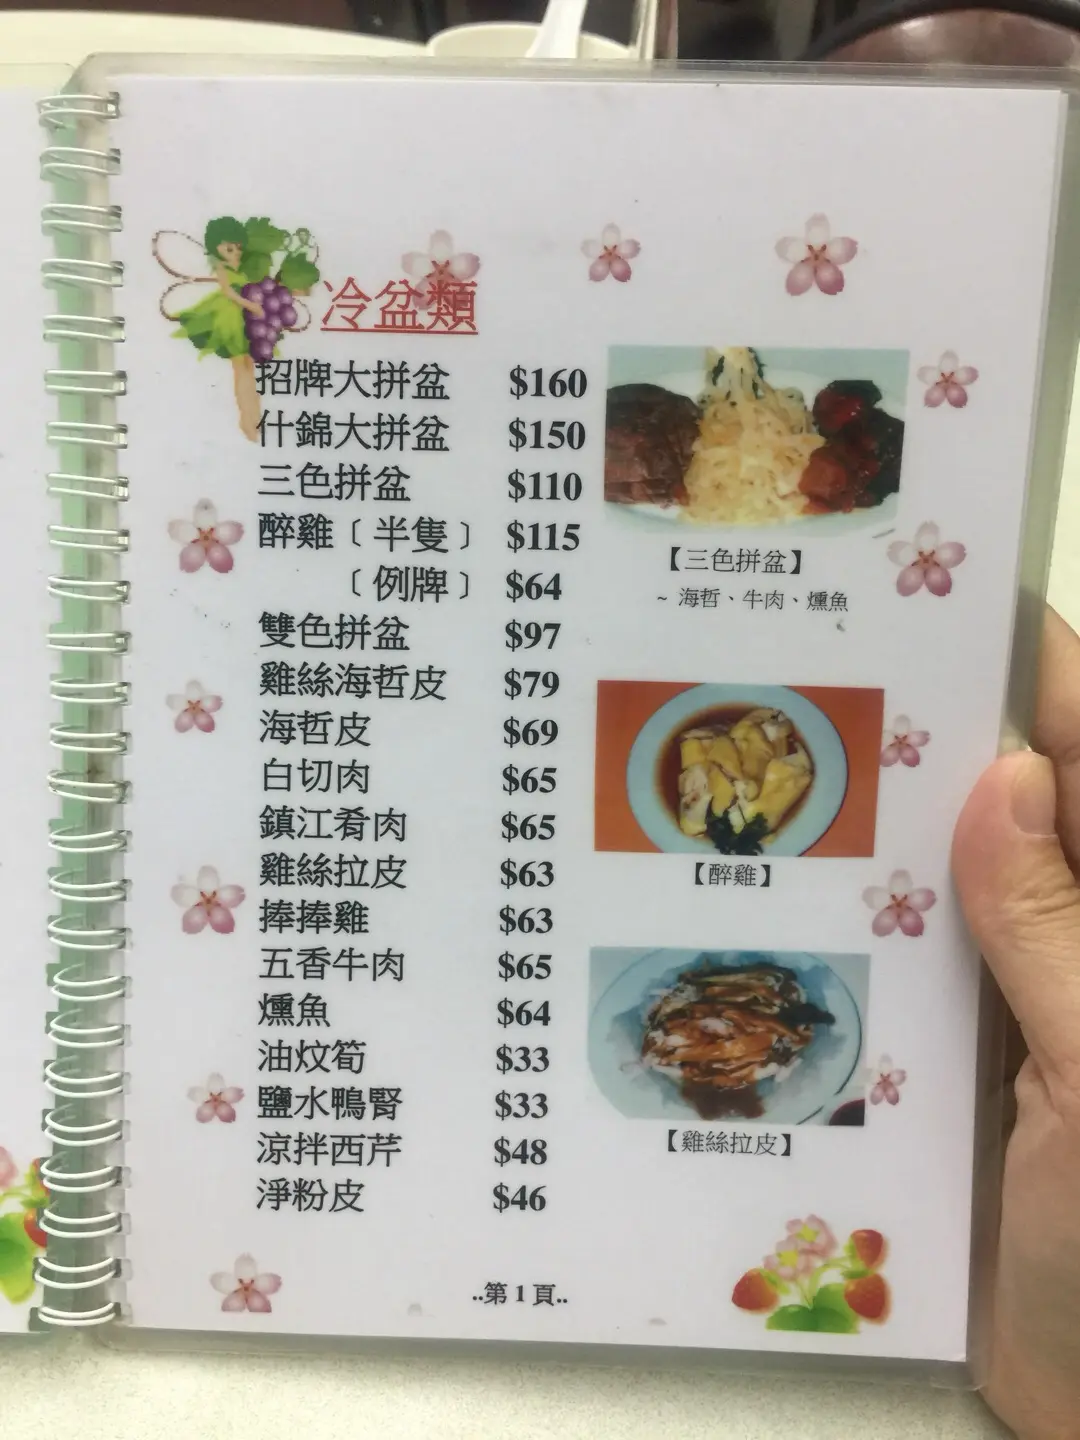 冷盆類
招牌大拼盆 $160
什錦大拼盆 $150
三色拼盆 $110
醉雞﹝半隻﹞ $115
﹝例牌﹞ $64
雙色拼盆 $97
雞絲海哲皮 $79
海哲皮 $69
白切肉 $65
鎮江肴肉 $65
雞絲拉皮 $63
捧捧雞 $63
五香牛肉 $65
燻魚 $64
油炆筍 $33
鹽水鴨腎 $33
涼拌西芹 $48
淨粉皮 $46
【三色拼盆】
~ 海哲、牛肉、燻魚
【醉雞】
【雞絲拉皮】
..第 1 頁..